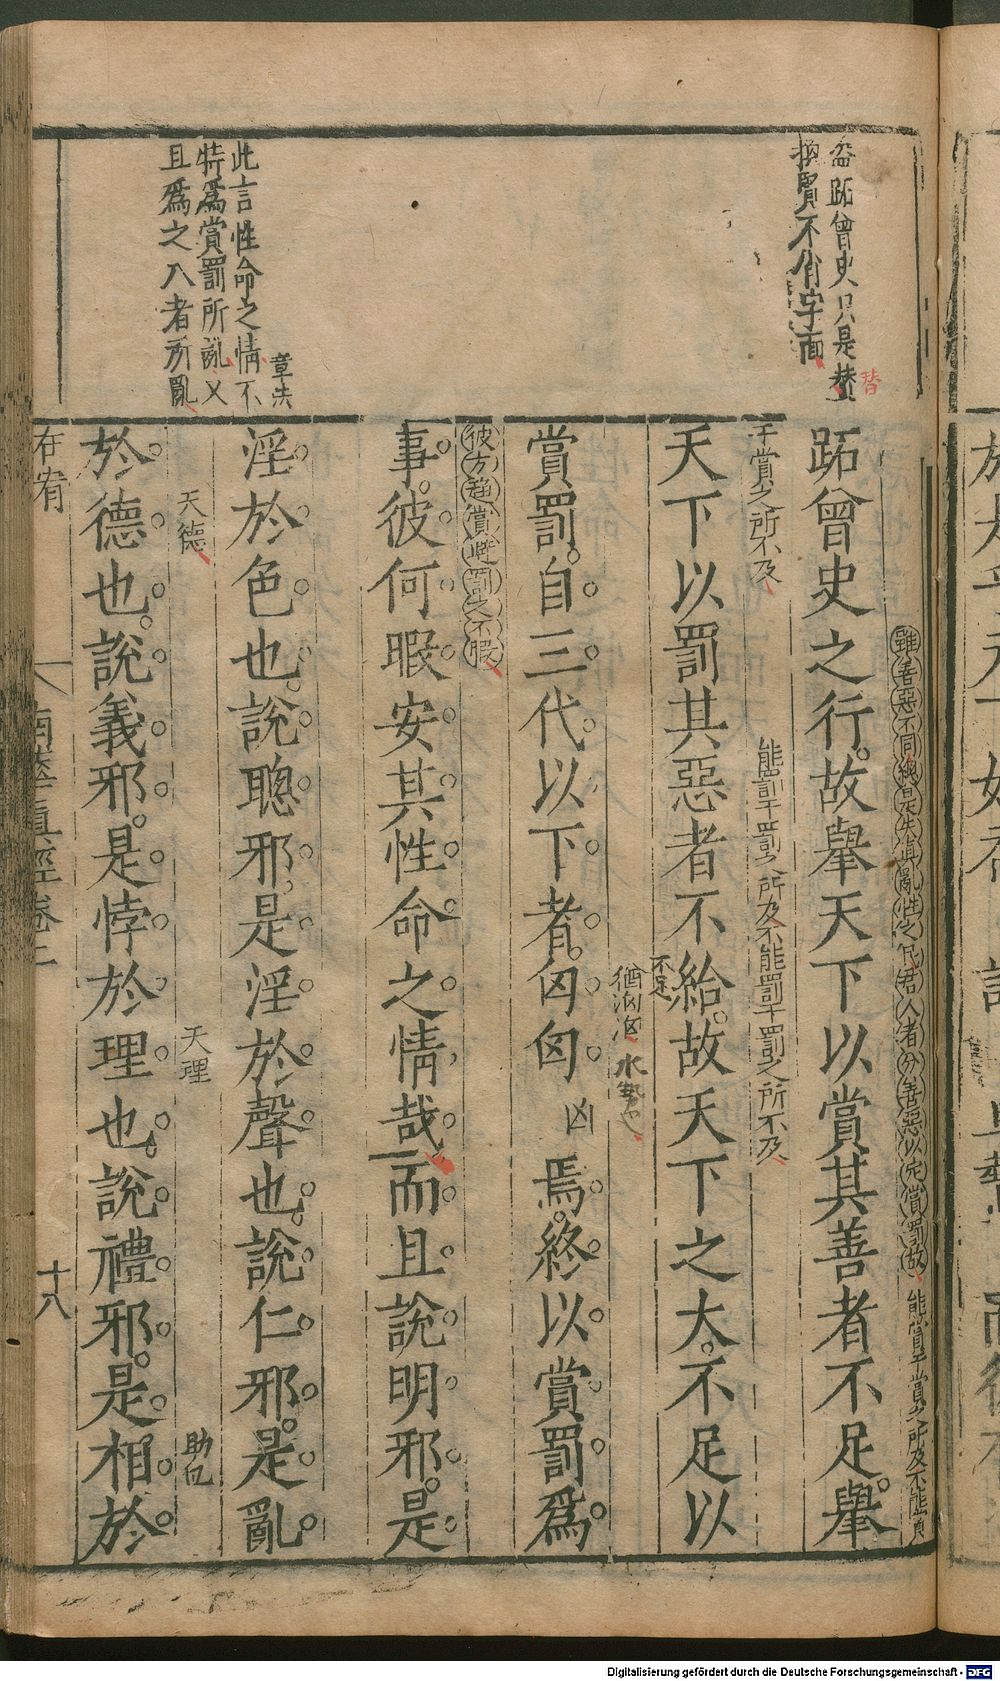 盗跖曾史只是替
換賢不肖字面
章法
此言性命之情不
特爲賞罰所亂又
且爲之八者所亂
雖善惡不同緫是失眞亂性之民君人者分善惡以定賞罰故
能賞于賞之所及不能賞
跖曾史之行故舉天下以賞其善者不足舉
于賞之所不及
能罰于罰之所及不能罰于罰之所不及
天下以罰其惡者不給故天下之大不足以
不足
猶洶洶水勢也
賞罰自三代以下者匈匈凶焉終以賞罰爲
彼方趨賞避罰之不暇
事彼何暇安其性命之情哉而且說明邪是
淫於色也說聰邪是淫於聲也說仁邪是亂
天德
天理
助也
於德也說義邪是悖於理也說禮邪是相於
在宥
南華眞經卷二
十八
Digitalisierung gefördert durch die Deutsche Forschungsgemeinschaft - DFG